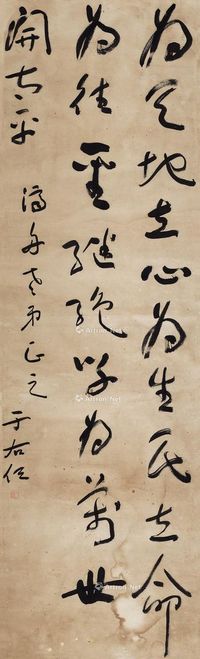 為天地立心為生民立命
為往聖繼絕學為萬世
開太平
老弟正之
于右任
Artron.Net
Artron.Net